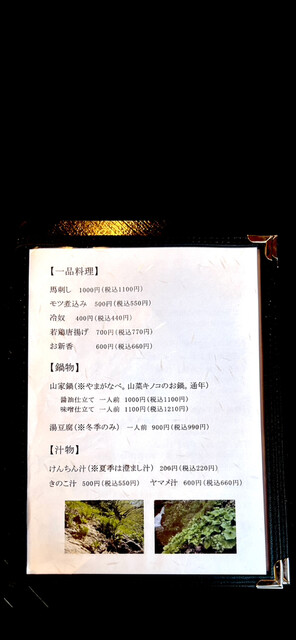 【一品料理】
馬刺し 1000円(税込1100円)
モツ煮込み 500円(税込550円)
冷奴 400円(税込440円)
若鶏唐揚げ 700円(税込770円)
お新香 600円(税込660円)
【鍋物】
山家鍋(※やまがなべ。山菜キノコのお鍋。通年)
醤油仕立て 一人前 1000円(税込1100円)
味噌仕立て 一人前 1100円(税込1210円)
湯豆腐(※冬季のみ) 一人前 900円(税込990円)
【汁物】
けんちん汁(※夏季は澄まし汁) 200円(税込220円)
きのこ汁 500円(税込550円) ヤマメ汁 600円(税込660円)